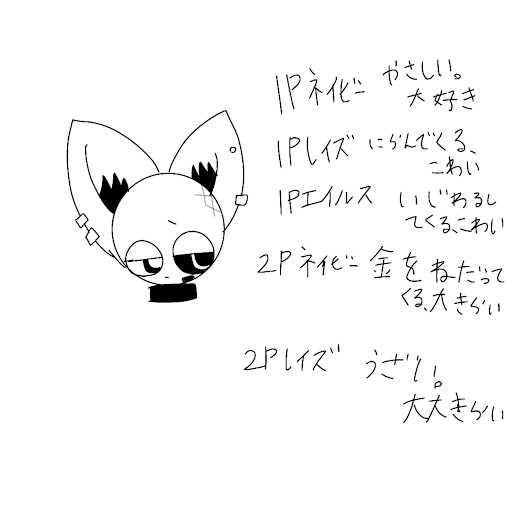 1Pネイビー やさしい。
大好き
1Pレイズ にらんでくる、
こわい
1Pエイルス いじわるし
てくる、こわい
2Pネイビー 金をねだって
くる、大きらい
2Pレイズ うざい。
大大きらい